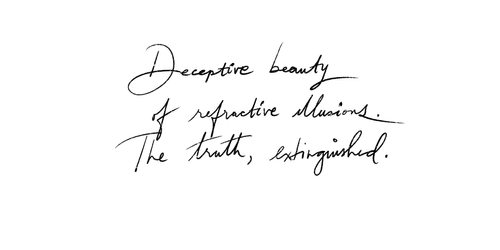 Deceptive beauty
of refractive illusions.
The truth, extinguished.